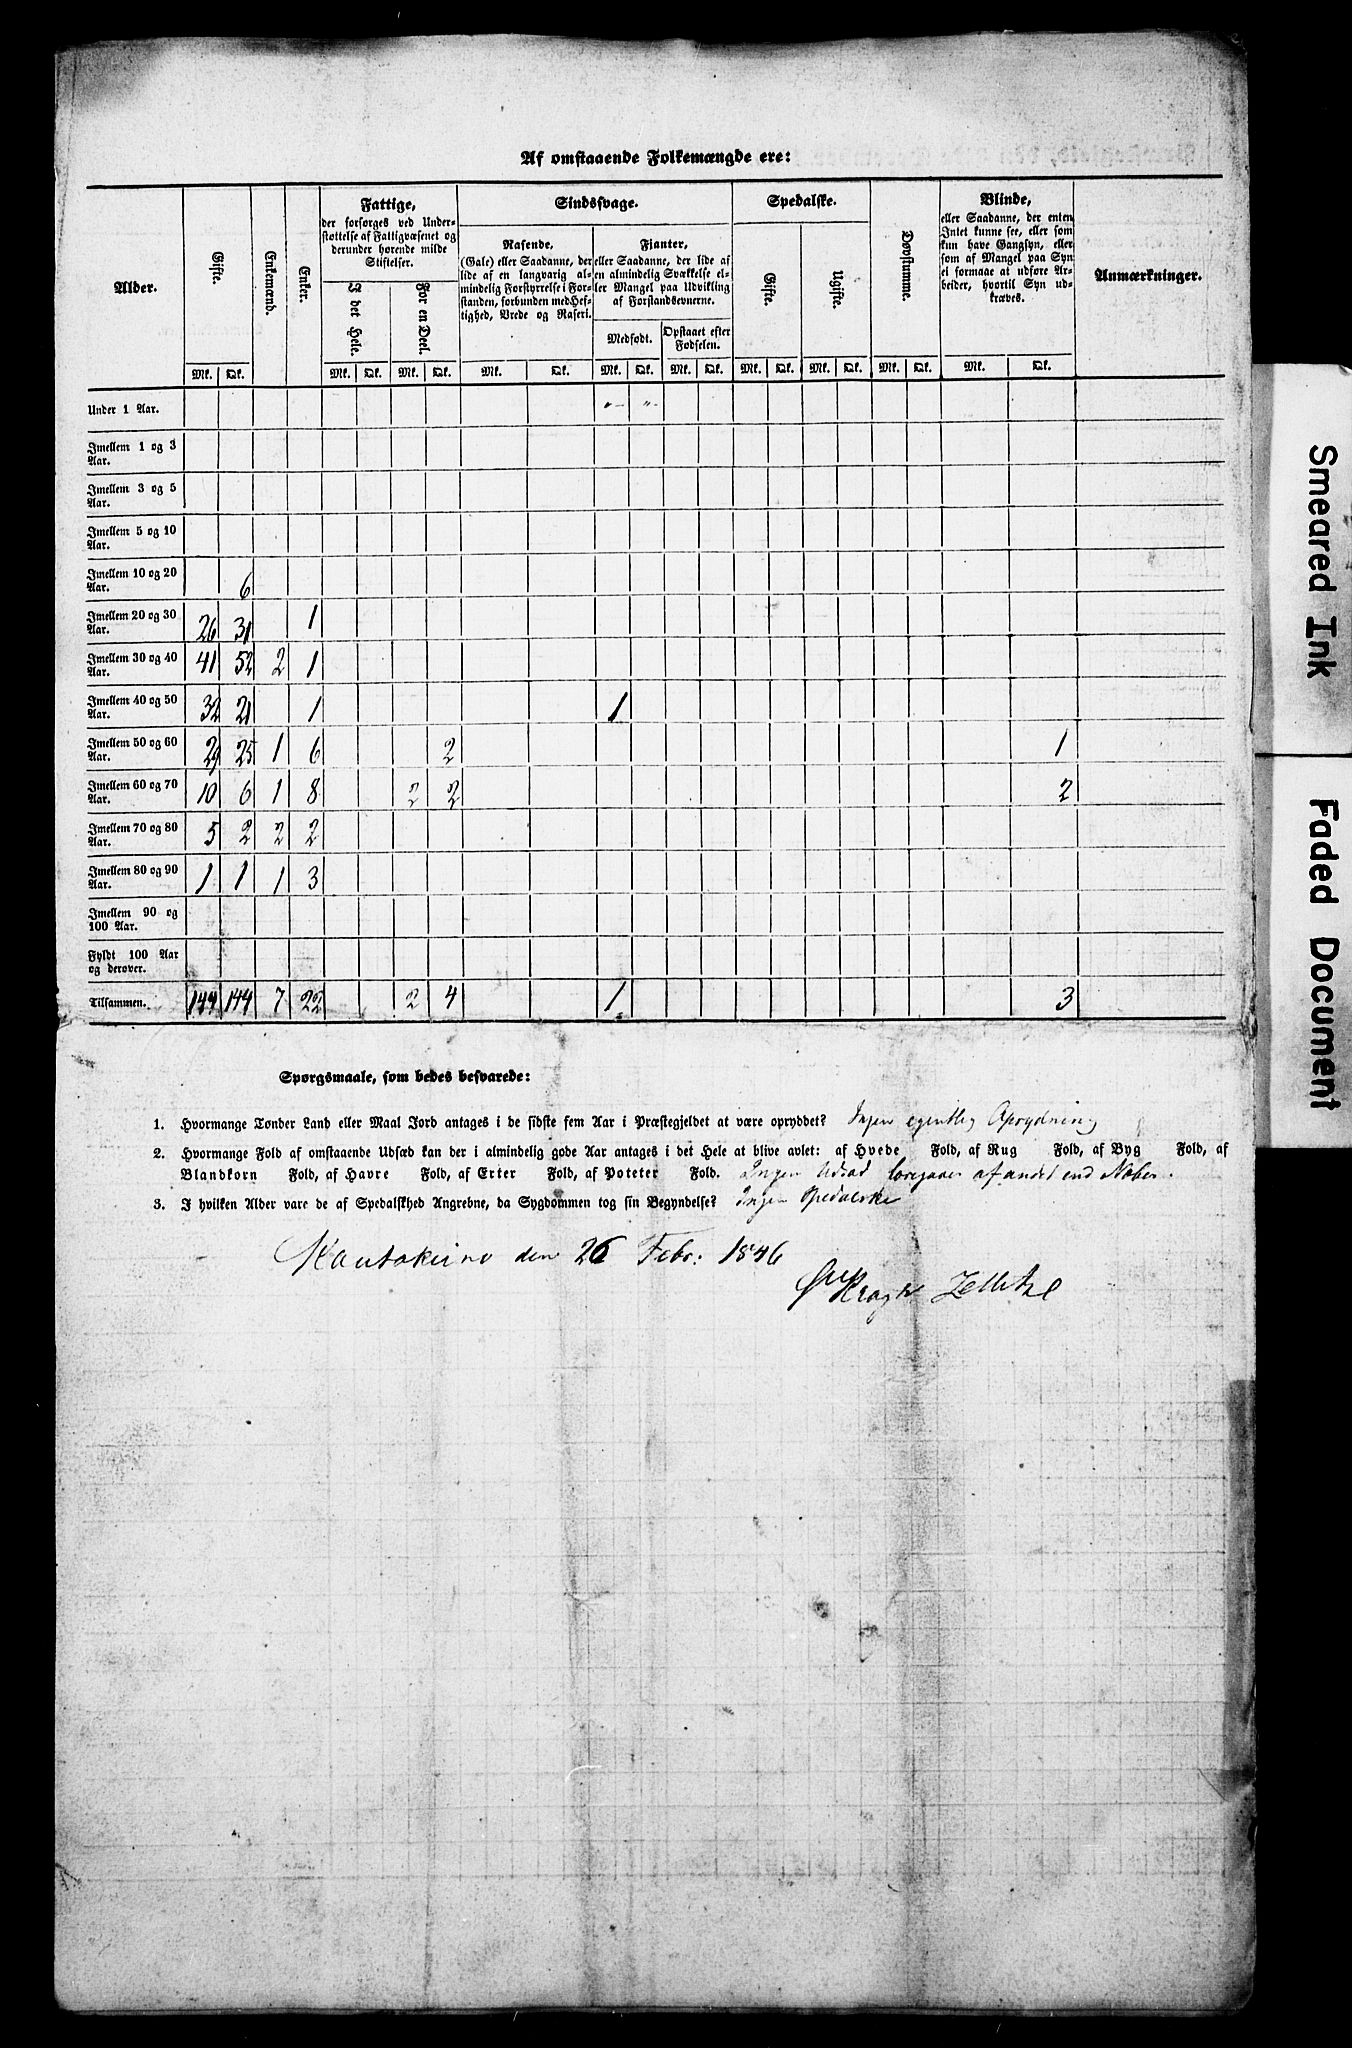 Af omstaaende Folkemængde ere:
Alder. | Gifte. | Enkemænd. | Enker. | Fattige, der forsorges ved Understottelse af Fattigvæsenet og derunder horende milde Stiftelser. | Sindssvage. | Spedalske. | Dovstumme. | Blinde, eller Saadanne, der enten Intet kunne see, eller som kun have Gangsyn, eller som af Mangel paa Syn ei formaae at udfore Arbeider, hvortil Syn udkræves. | Anmærkninger.
I det Hele. | For en Deel. | Rasende, (Gale) eller Saadanne, der lide af en langvarig almindelig Forstyrrelse i Forstanden, forbunden med Heftighed, Vrede og Raseri. | Fianter, eller Saadanne, der lide af en almindelig Svækkelse eller Mangel paa Udvikling af Forstandsevnerne. | Gifte. | Ugifte.
Medfodt. | Opstaaet efter Fodselen.
Mk. | Qk. | Mk. | Qk. | Mk. | Qk. | Mk. | Qk. | Mk. | Qk. | Mk. | Qk. | Mk. | Qk. | Mk. | Qk. | Mk. | Qk. | Mk. | Qk.
Under 1 Aar. | „ | „
Imellem 1 og 3 Aar.
Imellem 3 og 5 Aar.
Imellem 5 og 10 Aar.
Imellem 10 og 20 Aar. | 6
Imellem 20 og 30 Aar. | 26 | 31 | 1
Imellem 30 og 40 Aar. | 41 | 52 | 2 | 1
Imellem 40 og 50 Aar. | 32 | 21 | 1 | 1
Imellem 50 og 60 Aar. | 29 | 25 | 1 | 6 | 2 | 1
Imellem 60 og 70 Aar. | 10 | 6 | 1 | 8 | 2 | 2 | 2
Imellem 70 og 80 Aar. | 5 | 2 | 2 | 2
Imellem 80 og 90 Aar. | 1 | 1 | 1 | 3
Imellem 90 og 100 Aar.
Fyldt 100 Aar og derover.
Tilsammen. | 144 | 144 | 7 | 22 | 2 | 4 | 1 | 3
Sporgsmaale, som bedes besvarede:
1. Hvormange Tonder Land eller Maal Jord antages i de sidste fem Aar i Præstegjeldet at være opryddet? Ingen egentlig Oprydning
2. Hvormange Fold af omstaaende Udsæd kan der i almindelig gode Aar antages i det Hele at blive avlet: af Hvede Fold, af Rug Fold, af Byg Fold, af
Blandkorn Fold, af Havre Fold, af Erter Fold, af Poteter Fold. Ingen Udsæd foregaaer af andet end Næber.
3. I hvilken Alder vare de af Spedalskhed Angrebne, da Sygdommen tog sin Begyndelse? Ingen Spedalske
Kautokeino den 26 Febr: 1846
Smeared Ink
Faded Document